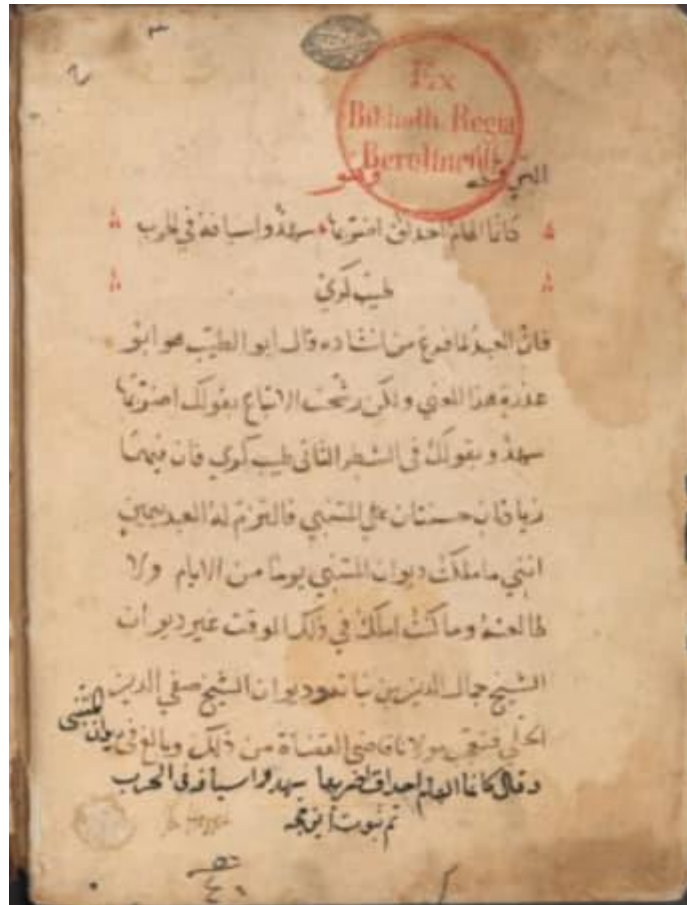 Ex
Biblioth. Regia
Berolinensi
كانما الهام احداق اضر بها سهد واسيافه في الحرب
طيب كري
فان العبد لما فرغ من انشاده قال ابو الطيب هو ابو
عذرة هذا المعني ولكن رشحت الاتباع بقولك اضر بها
سهد وبقولك في الشطر الثاني طيب كري فان فيهما
زيادتان حسنتان علي المتنبي فالتزم له العبد بيمين
انني ما ملكت ديوان المتنبي يوما من الايام ولا
طالعته وما كنت املك في ذلك الوقت غير ديوان
الشيخ جمال الدين بن نباته وديوان الشيخ صفي الدين
الحلي فتعجب مولانا قاضي القضاة من ذلك وبالغ في
وقال كانما الهام احداق اضر بها سهد واسيافه في الحرب